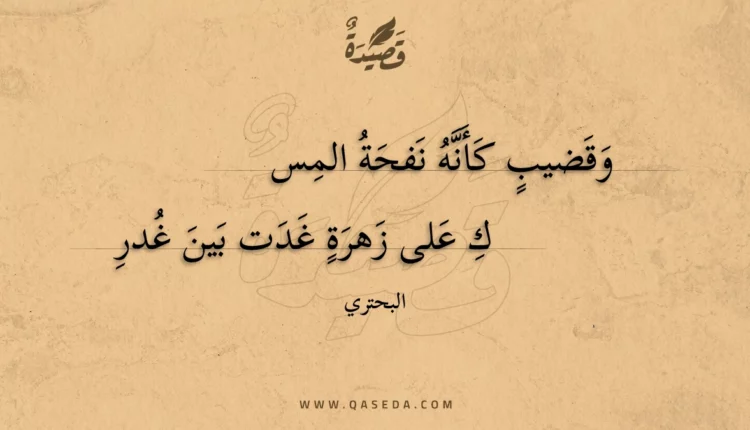 قَصِيدَةٌ
وَقَضيبٍ كَأَنَّهُ نَفحَةُ المِس
كِ عَلى زَهرَةٍ غَدَت بَينَ غُدرِ
البحتري
WWW.QASEDA.COM